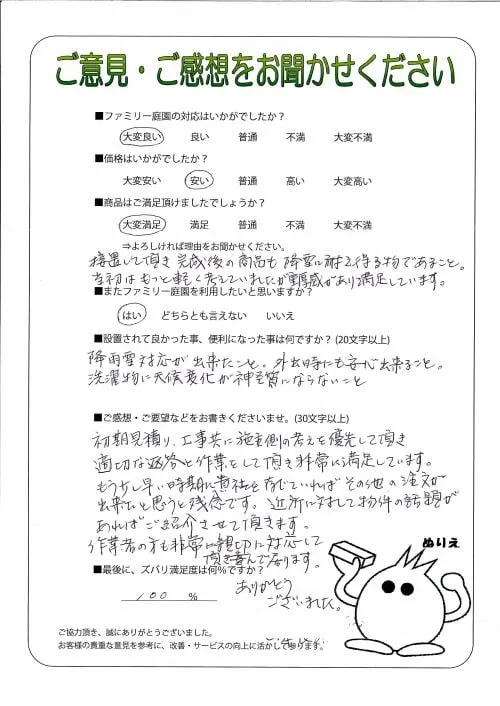 ご意見・ご感想をお聞かせください
■ファミリー庭園の対応はいかがでしたか？
大変良い 良い 普通 不満 大変不満
■価格はいかがでしたか？
大変安い 安い 普通 高い 大変高い
■商品はご満足頂けましたでしょうか？
大変満足 満足 普通 不満 大変不満
⇒よろしければ理由をお聞かせください。
設置して頂き完成後の商品も降雪に耐え得る物であること。
当初はもっと軽く考えていましたが重厚感があり満足しています。
■またファミリー庭園を利用したいと思いますか？
はい どちらとも言えない いいえ
■設置されて良かった事、便利になった事は何ですか？(20文字以上)
降雨雪対応が出来たこと。外出時にも安心出来ること。
洗濯物に天候変化が神経質にならないこと
■ご感想・ご要望などをお書きくださいませ。(30文字以上)
初期見積り、工事共に施主側の考えを優先して頂き
適切な返答と作業をして頂き非常に満足しています。
もう少し早い時期に貴社を存じていればその他の注文が
出来たと思うと残念です。近所に対して物件の話題が
あればご紹介させて頂きます。
作業者の方も非常に親切に対応して
頂き喜んでおります。
■最後に、ズバリ満足度は何％ですか？
100 %
ありがとう
ございました。
ぬりえ
ご協力頂き、誠にありがとうございました。
お客様の貴重な意見を参考に、改善・サービスの向上に活かして参ります。